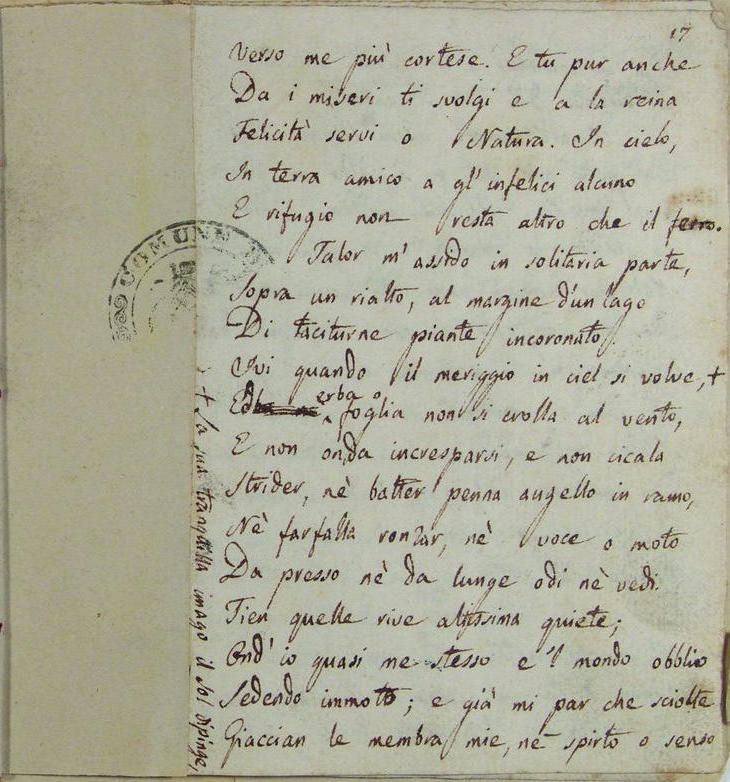 17
Verso me più cortese. E tu pur anche
Da i miseri ti svolgi e a la reina
Felicità servi o Natura. In cielo,
In terra amico a gl' infelici alcuno
E rifugio non resta altro che il ferro.
Talor m' assido in solitaria parte,
Sopra un rialto, al margine d'un lago
Di taciturne piante incoronato.
Ivi quando il meriggio in ciel si volve, +
Ed erba o foglia non si crolla al vento,
E non onda incresparsi, e non cicala
Strider, nè batter penna augello in ramo,
Nè farfalla ronzar, nè voce o moto
Da presso nè da lunge odi nè vedi.
Tien quelle rive altissima quiete;
Ond' io quasi me stesso e 'l mondo obblio
Sedendo immoto; e già mi par che sciolte
Giaccian le membra mie, nè spirto o senso
+ La sua tranquilla imago il Sol dipinge,
COMUNE D